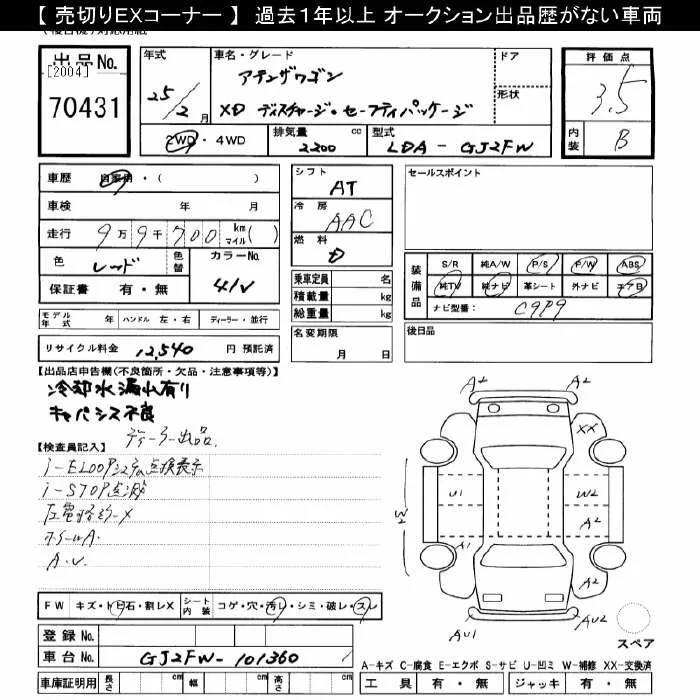 【 売切りEXコーナー 】 過去1年以上 オークション出品歴がない車両
出品No.
[2004]
70431
年式
25/2月
車名・グレード
アテンザワゴン
XD ディスチャージ・セーフティパッケージ
ドア
形状
評価点
3.5
内装
B
2WD・4WD
排気量 cc
2200
型式
LDA - GJ2FW
車歴 自家用・( )
車検 年 月
走行 9万9千700 km マイル( )
色 レッド 色替
カラーNo. 41V
保証書 有・無
モデル年式 年 ハンドル 左・右 ディーラー・並行
リサイクル料金 12,540 円 預託済
シフト
AT
冷房
AAC
燃料
D
乗車定員 名
積載量 kg
総重量 kg
名変期限
月 日
セールスポイント
装備品
S/R 純A/W P/S P/W ABS
純TV 純ナビ 革シート 外ナビ エアB
ナビ型番: C9P9
後日品
【出品店申告欄(不良箇所・欠品・注意事項等)】
冷却水漏れ有り
キャパシス不良
ディーラー出品
【検査員記入】
i-ELOOPシステム点検表示
i-STOP点滅
ホイールA.
A.U.
A2 A2
XX
U1 W2
W2
A2
A1
A2
AU1 AU2
スペア
FW キズ・トビ石・割レX シート内装 コゲ・穴・汚レ・シミ・破レ・スレ
登録No.
車台No. GJ2FW-101360
車庫証明用 長さ cm 幅 cm 高さ cm
A-キズ C-腐食 E-エクボ S-サビ U-凹ミ W-補修 XX-交換済
工具 有・無 ジャッキ 有・無